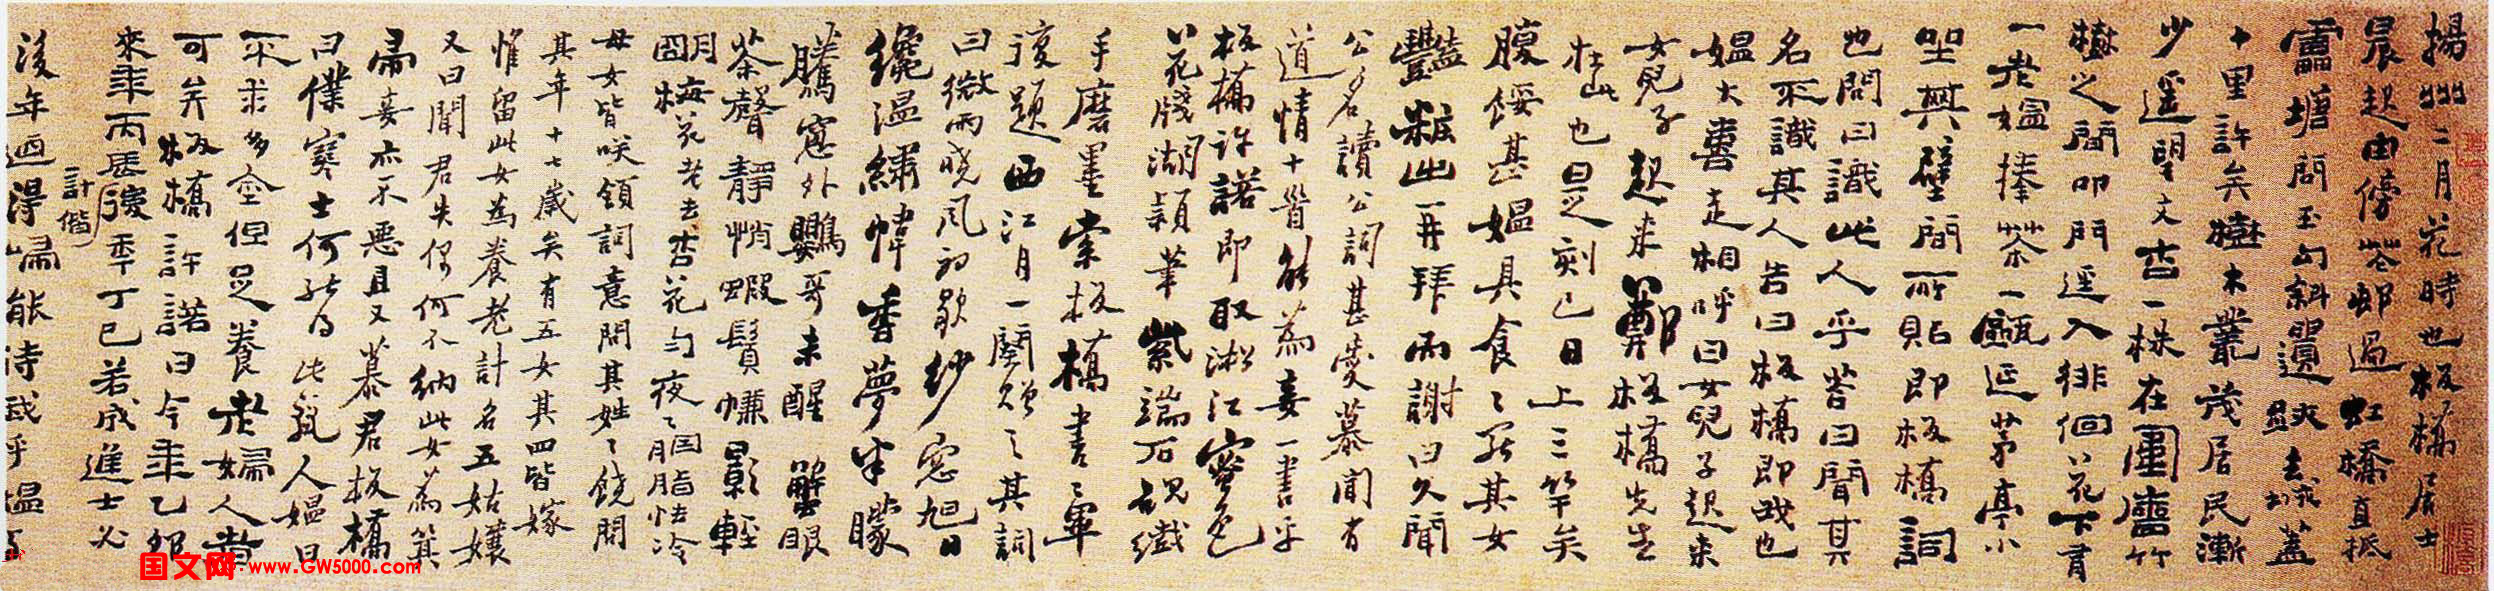 揚州二月花時也板橋居士
晨起由傍花邨過虹橋直抵
靁塘問玉勾斜遺跡去城蓋
十里許矣樹木叢茂居民漸
少遥望文杏一株在圍牆竹
樹之間叩門逕入徘徊花下有
一老媪捧茶一甌延茅亭小
坐其壁間所貼即板橋詞
也問曰識此人乎荅曰聞其
名不識其人告曰板橋即我也
媪大喜走相呼曰女兒子起來
女兒子起来鄭板橋先生
在此也是刻已日上三竿矣
腹餒甚媪具食〻罷其女
豔粧出再拜而謝曰久聞
公名讀公詞甚愛慕聞有
道情十首能為妾一書乎
板橋許諾即取淞江蜜色
花牋湖潁筆紫端石硯纖
手磨墨索板橋書〻畢
復題西江月一闋贈之其詞
曰微雨曉風初歇紗窓旭日
纔温繡幃香夢半朦
騰窓外鸚哥未醒蟹眼
茶聲靜悄蝦鬚㡘影輕
明梅花老去杏花勻夜〻胭脂怯冷
母女皆咲領詞意問其姓〻饒問
其年十七歲矣有五女其四皆嫁
惟留此女為養老計名五姑孃
又曰聞君失偶何不納此女為箕
帚妾亦不惡且又慕君板橋
曰僕寒士何能得此麗人媪曰
不求多金但足養老婦人者
可矣板橋許諾曰今年乙卯
來年丙辰計偕後年丁巳若成進士必
後年迺得歸能待我乎媪
国文网·www.GW5000.com